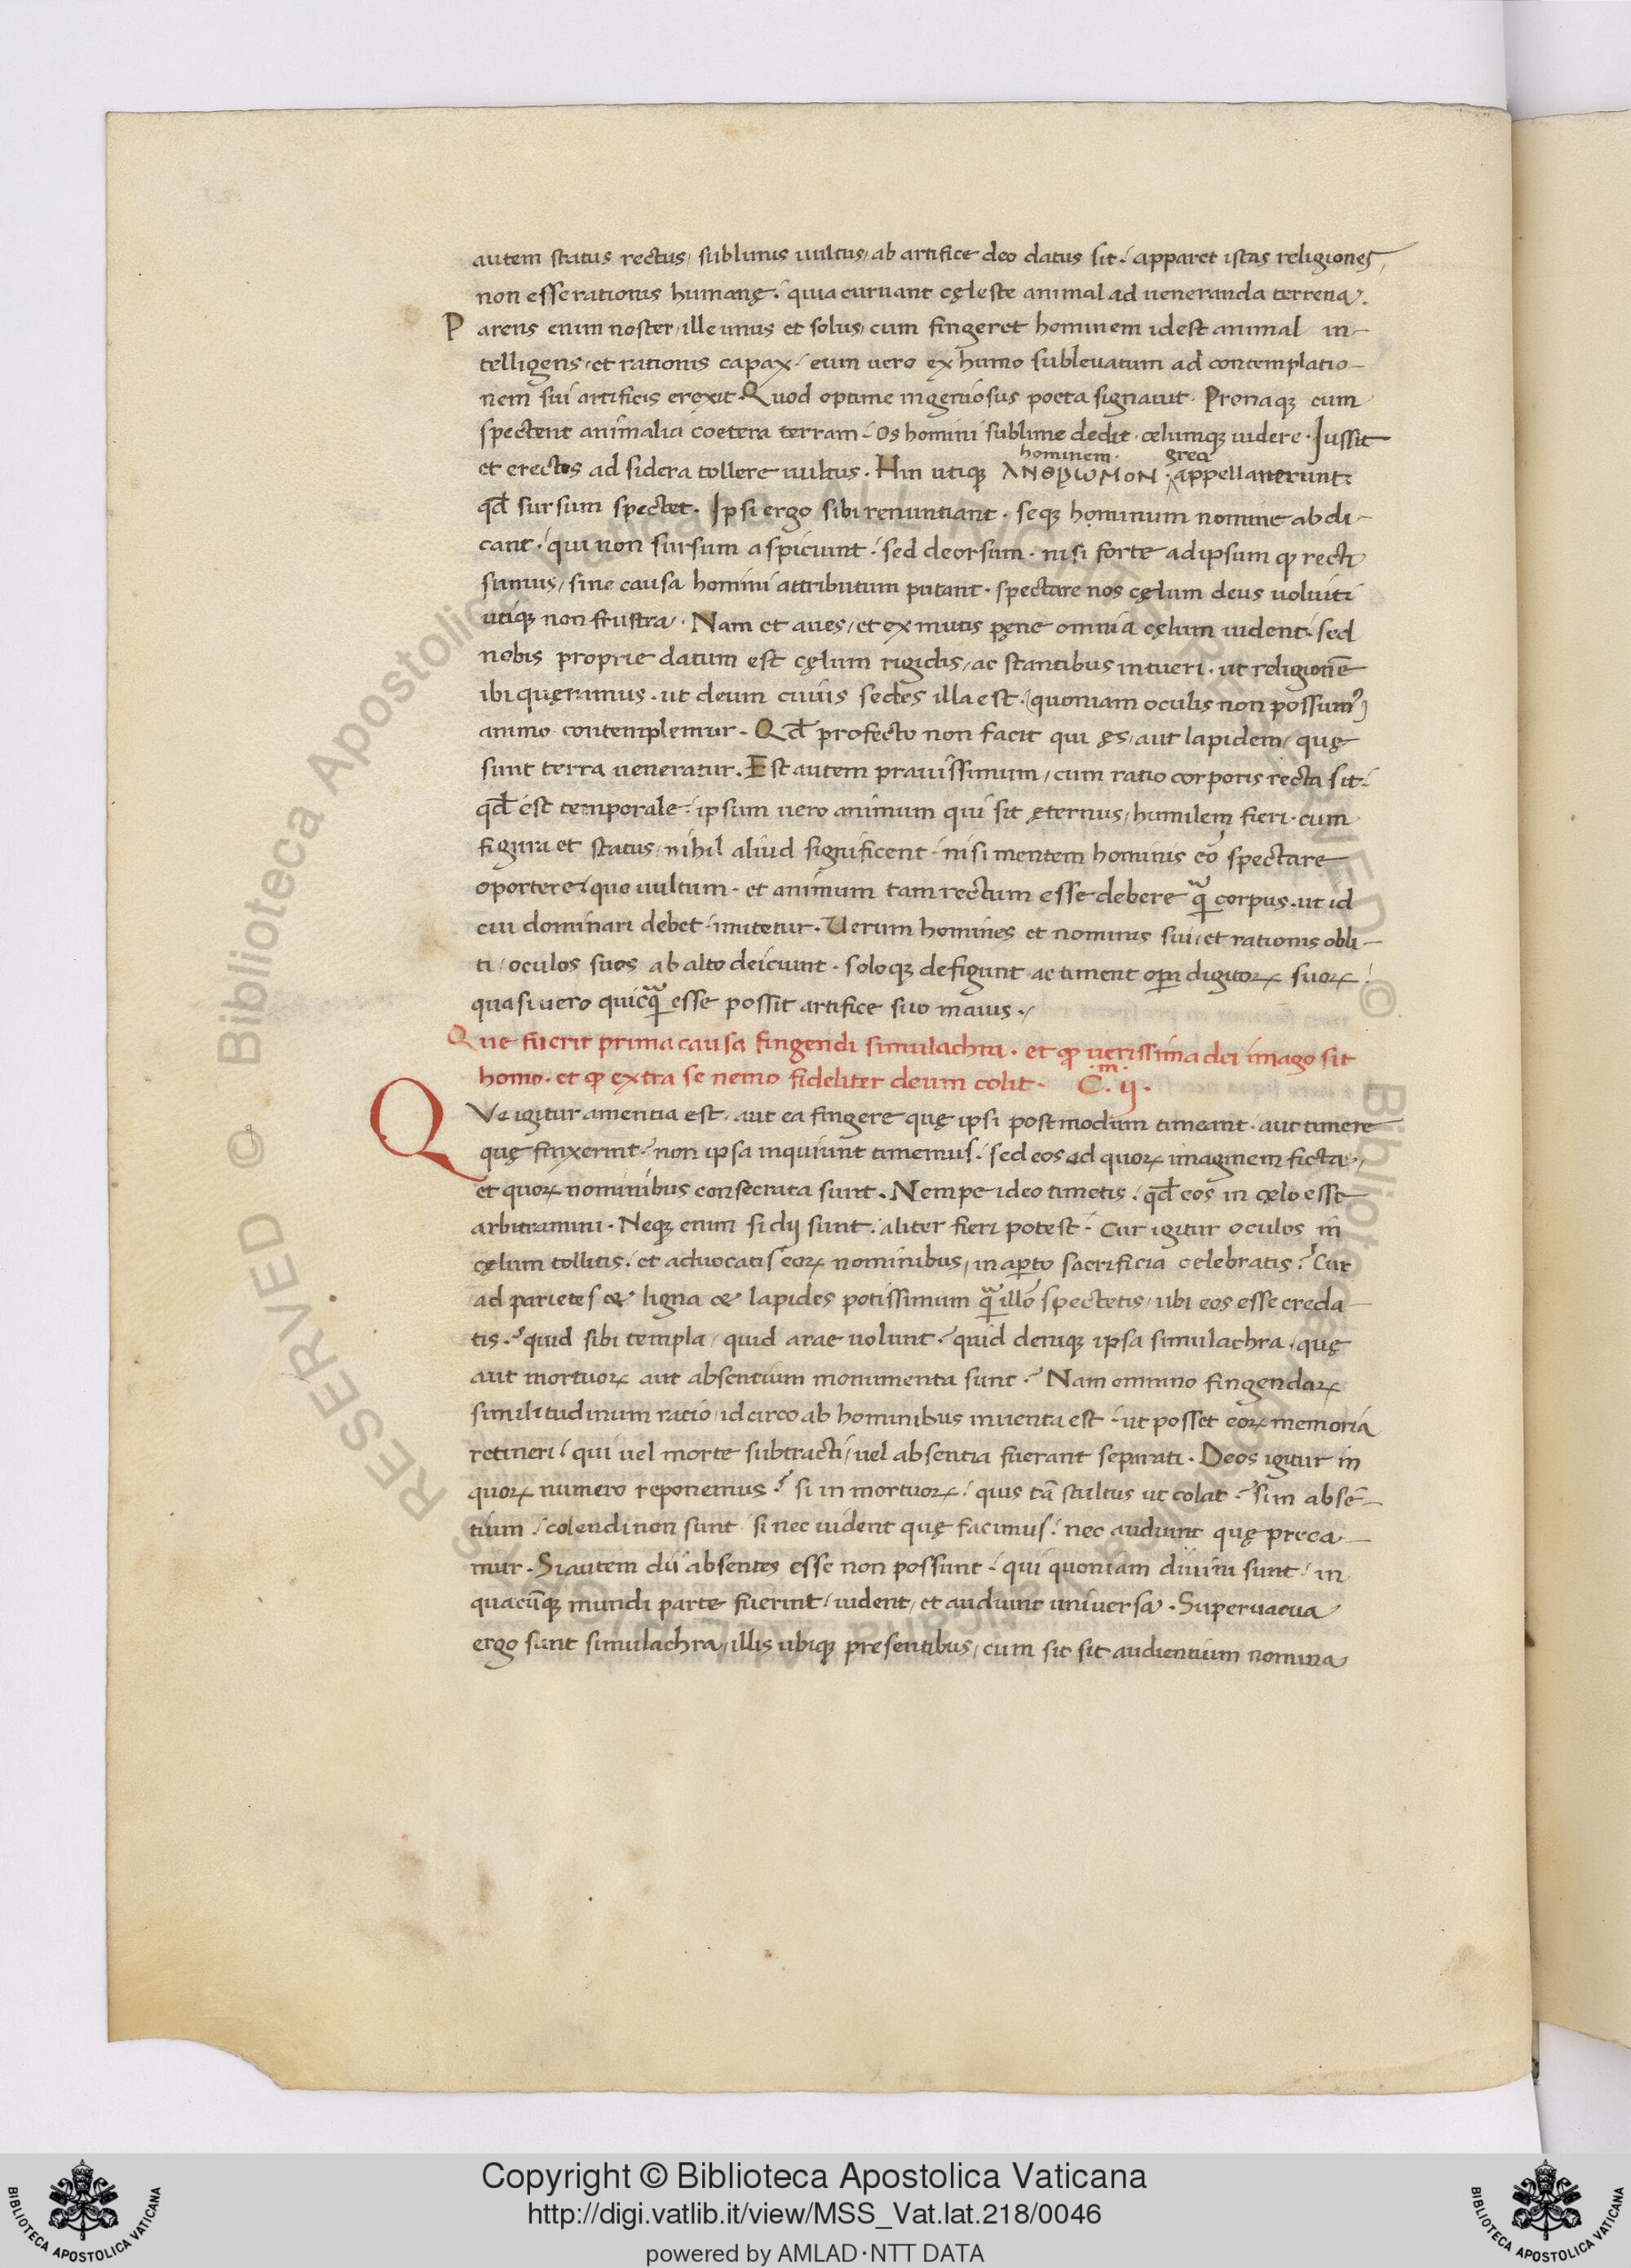 autem status rectus, sublimis uultus, ab artifice deo datus sit: apparet istas religiones,
non esse rationis humanę: quia curuant cęleste animal ad ueneranda terrena.
Parens enim noster, ille unus et solus, cum fingeret hominem idest animal in-
telligens, et rationis capax: eum uero ex humo subleuatum ad contemplatio-
nem sui artificis erexit. Quod optime ingeniosus poeta signauit. Pronaqꝫ cum
spectent animalia coetera terram: Os homini sublime dedit. cęlumqꝫ uidere. Jussit
et erectos ad sidera tollere uultus. Hin utiqꝫ hominem. ΑΝΘΡΩΜΟΝ. greci appellauerunt:
qđ sursum spectet. Ipsi ergo sibi renuntiant. seqꝫ hominum nomine abdi-
cant: qui non sursum aspiciunt: sed deorsum. nisi forte adipsum ꝙ recti
sumus, sine causa homini attributum putant. spectare nos cęlum deus uoluit:
utiqꝫ non frustra. Nam et aues, et ex mutis pęne omnia cęlum uident: sed
nobis proprie datum est cęlum rigidis, ac stantibus intueri. ut religionē
ibi quęramus. ut deum cuius sedes illa est. (quoniam oculis non possumꝰ)
animo contemplemur. Qđ profecto non facit qui ęs, aut lapidem, quę
sunt terra ueneratur. Est autem prauissimum, cum ratio corporis recta sit:
qđ est temporale: ipsum uero animum qui sit ęternus, humilem fieri. cum
figura et status, nihil aliud significent. nisi mentem hominis eo spectare
oportere, quo uultum. et animum tam rectum esse debere ꝗᷓ corpus. ut id
cui dominari debet. imitetur. Uerum homines et nominis sui, et rationis obli-
ti, oculos suos ab alto deiciunt. soloqꝫ defigunt ac timent oꝑa digitoꝝ suoꝝ:
quasi uero quicꝗᷓ esse possit artifice suo maius.
Que fuerit prima causa fingendi simulachra. et ꝙ uerissima dei imago sit
homo. et ꝙ extra se nemo fideliter deum colit. C.m ij.
QVe igitur amentia est, aut ea fingere quę ipsi postmodum timeant. aut timere
quę finxerint? non ipsa inquiunt timemus: sed eos ad quoꝝ imaginem ficta,
et quoꝝ nominibus consecrata sunt. Nempe ideo timetis: qđ eos in cęlo esse
arbitramini. Neqꝫ enim si dij sunt: aliter fieri potest. Cur igitur oculos in
cęlum tollitis? et aduocatis eoꝝ nominibus, in aꝑto sacrificia celebratis? Cur
ad parietes & ligna & lapides potissimum ꝗᷓ illo spectetis, ubi eos esse creda-
tis? quid sibi templa, quid arae uolunt? quid deniqꝫ ipsa simulachra, quę
aut mortuoꝝ aut absentium monumenta sunt? Nam omnino fingendaꝝ
similitudinum ratio, idcirco ab hominibus inuenta est: ut posset eoꝝ memoria
retineri: qui uel morte subtracti, uel absentia fuerant separati. Deos igitur in
quoꝝ numero reponemus? si in mortuoꝝ: quis tā stultus ut colat? sin absē-
tium: colendi non sunt. si nec uident quę facimus: nec audiunt quę preca-
mur. Si autem dii absentes esse non possunt: qui quoniam diuini sunt: in
quacūqꝫ mundi parte fuerint: uident, et audiunt uniuersa. Superuacua
ergo sunt simulachra, illis ubiqꝫ presentibus, cum sit sit audientium nomina
RESERVED © Biblioteca Apostolica
Copyright © Biblioteca Apostolica Vaticana
http://digi.vatlib.it/view/MSS_Vat.lat.218/0046
powered by AMLAD·NTT DATA
BIBLIOTECA APOSTOLICA VATICANA
BIBLIOTECA APOSTOLICA VATICANA